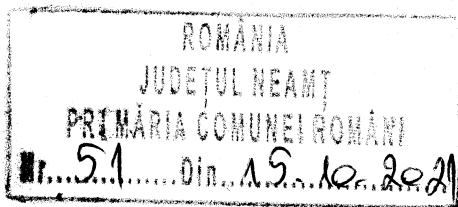 ROMÂNIA
JUDEȚUL NEAMȚ
PRIMĂRIA COMUNEI ROMÂNI
Nr....51......Din...15.10.2021